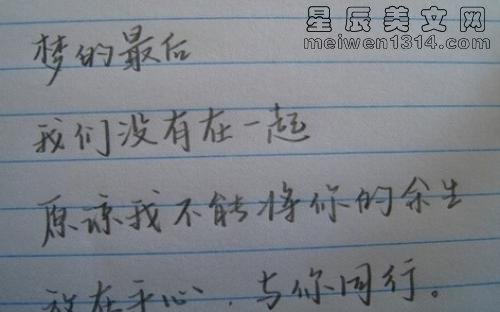 星辰美文网
meiwen1314.com
梦的最后
我们没有在一起
原谅我不能将你的余生
放在手心,与你同行。